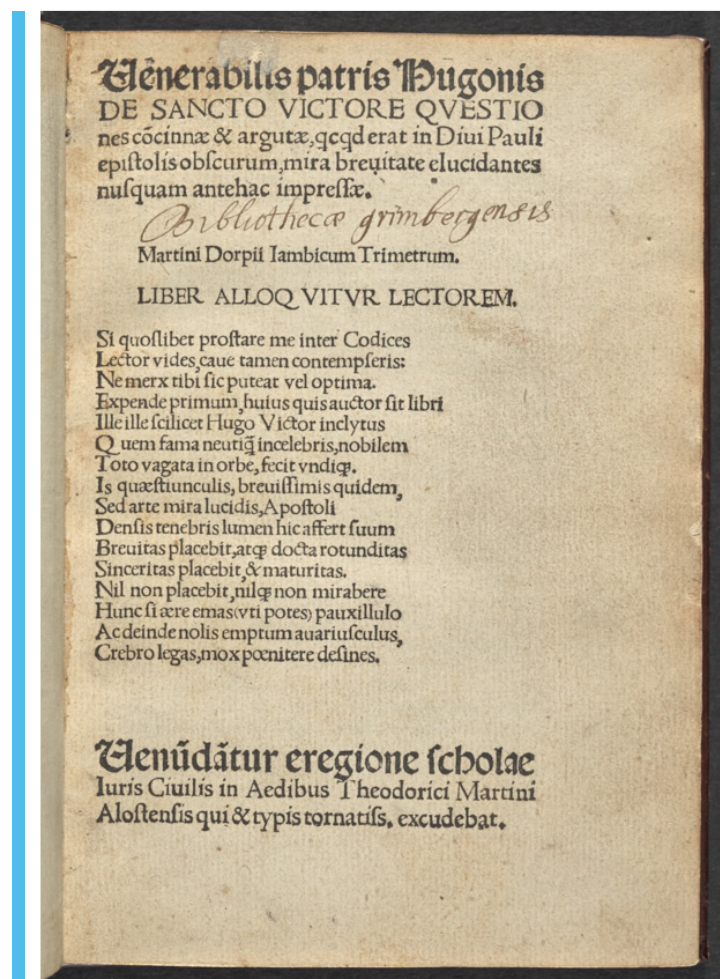 Uenerabilis patris Hugonis
DE SANCTO VICTORE QVESTIO
nes cōcinnæ & argutæ, qcqd erat in Diui Pauli
epiſtolis obſcurum, mira breuitate elucidantes
nuſquam antehac impreſſæ.
Bibliothecæ grimbergensis
Martini Dorpii Iambicum Trimetrum.
LIBER ALLOQVITVR LECTOREM.
Si quoſlibet proſtare me inter Codices
Lector vides, caue tamen contempſeris:
Ne merx tibi ſic puteat vel optima.
Expende primum, huius quis auctor ſit libri
Ille ille ſcilicet Hugo Victor inclytus
Quem fama neutiq̃ incelebris, nobilem
Toto vagata in orbe, fecit vndiqꝫ.
Is quæſtiunculis, breuiſſimis quidem,
Sed arte mira lucidis, Apoſtoli
Denſis tenebris lumen hic affert ſuum
Breuitas placebit, atqꝫ docta rotunditas
Sinceritas placebit, & maturitas.
Nil non placebit, nilqꝫ non mirabere
Hunc ſi ære emas (vti potes) pauxillulo
Ac deinde nolis emptum auariuſculus,
Crebro legas, mox pœnitere deſines.
Uenūdãtur eregione ſcholae
Iuris Ciuilis in Aedibus Theodorici Martini
Aloſtenſis qui & typis tornatiſs. excudebat.